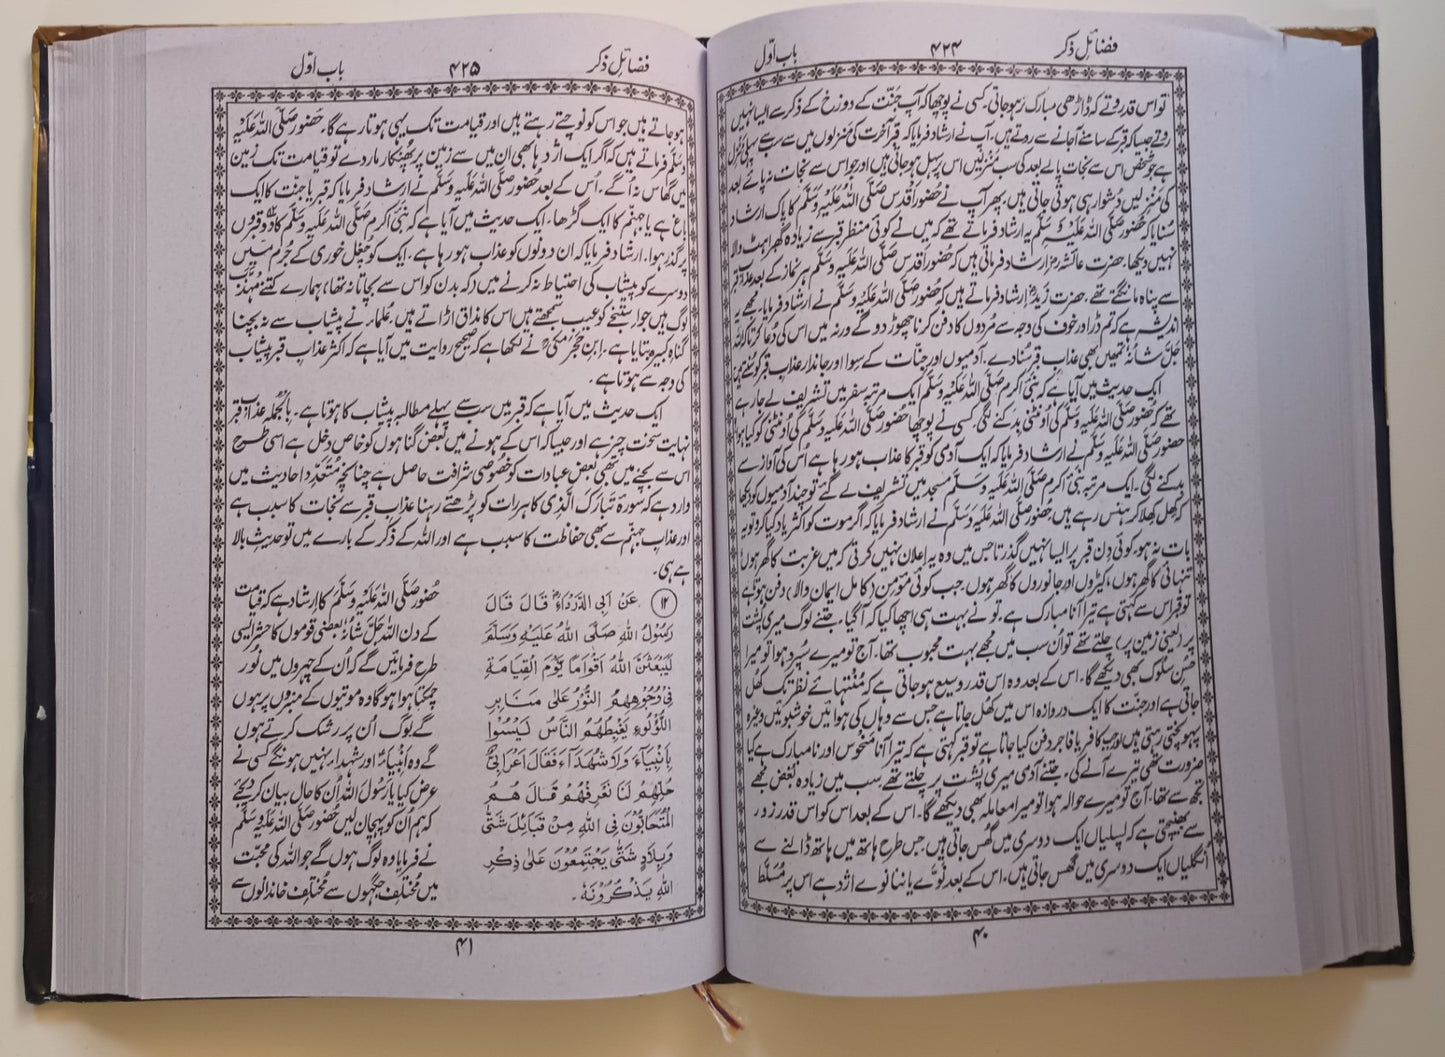 فضائلِ ذکر
۴۲۴
باب اوّل
تو اس قدر روتے کہ ڈاڑھی مبارک تر ہو جاتی۔ کسی نے پوچھا کہ آپ جنّت کے دوزخ کے ذکر سے ایسا نہیں
روتے جیسا کہ قبر کے سامنے آجانے سے روتے ہیں، آپ نے ارشاد فرمایا کہ قبر آخرت کی منزلوں میں سے سب سے پہلی منزل
ہے جو شخص اس سے نجات پالے بعد کی سب منزلیں اس پر سہل ہو جاتی ہیں اور جو اس سے نجات نہ پائے بعد
کی منزلیں دُشوار ہی ہوتی جاتی ہیں، پھر آپ نے حضور اقدس صَلَّی اللہُ عَلَیْہِ وَسَلَّم کا پاک ارشاد
سُنایا کہ حضور صَلَّی اللہُ عَلَیْہِ وَسَلَّم یہ ارشاد فرماتے تھے کہ میں نے کوئی منظر قبر سے زیادہ گھبراہٹ والا
نہیں دیکھا۔ حضرت عائشہؓ ارشاد فرماتی ہیں کہ حضور اقدس صَلَّی اللہُ عَلَیْہِ وَسَلَّم ہر نماز کے بعد عذابِ قبر
سے پناہ مانگتے تھے۔ حضرت زیدؓ ارشاد فرماتے ہیں کہ حضور صَلَّی اللہُ عَلَیْہِ وَسَلَّم نے ارشاد فرمایا۔ مجھے یہ
اندیشہ ہے کہ تم ڈر اور خوف کی وجہ سے مُردوں کا دفن کرنا چھوڑ دو گے ورنہ میں اس کی دُعا کرتا کہ اللہ
جَلَّ شَانُہٗ تمھیں بھی عذابِ قبر سُنا دے۔ آدمیوں اور جنّات کے سوا اور جاندار عذابِ قبر کو سُنتے ہیں
ایک حدیث میں آیا ہے کہ نبی اکرم صَلَّی اللہُ عَلَیْہِ وَسَلَّم ایک مرتبہ سفر میں تشریف لے جا رہے
تھے کہ حضور صَلَّی اللہُ عَلَیْہِ وَسَلَّم کی اُونٹنی بدکنے لگی۔ کسی نے پوچھا حضور صَلَّی اللہُ عَلَیْہِ وَسَلَّم کی اُونٹنی کو کیا ہوا
حضور صَلَّی اللہُ عَلَیْہِ وَسَلَّم نے ارشاد فرمایا کہ ایک آدمی کو قبر کا عذاب ہو رہا ہے اُس کی آواز سے
بدکنے لگی۔ ایک مرتبہ نبی اکرم صَلَّی اللہُ عَلَیْہِ وَسَلَّم مسجد میں تشریف لے گئے تو چند آدمیوں کو دیکھا
کہ کھل کھلا کر ہنس رہے ہیں۔ حضور صَلَّی اللہُ عَلَیْہِ وَسَلَّم نے ارشاد فرمایا کہ اگر موت کو اکثر یاد کیا کرو تو یہ
بات نہ ہو، کوئی دِن قبر پر ایسا نہیں گذرتا جس میں وہ یہ اعلان نہیں کرتی کہ میں غربت کا گھر ہوں
تنہائی کا گھر ہوں، کیڑوں اور جانوروں کا گھر ہوں۔ جب کوئی مؤمن (کامل ایمان والا) دفن ہوتا ہے
تو قبر اس سے کہتی ہے تیرا آنا مبارک ہے۔ تو نے بہت ہی اچھا کیا کہ آ گیا۔ جتنے لوگ میری پُشت
پر (یعنی زمین پر) چلتے تھے تو اُن سب میں مجھے بہت محبوب تھا۔ آج تو میرے سُپرد ہوا تو میرا
حُسنِ سلوک بھی دیکھے گا۔ اس کے بعد وہ اس قدر وسیع ہو جاتی ہے کہ مُنتہائے نظر تک کھل
جاتی ہے اور جنّت کا ایک دروازہ اس میں کھل جاتا ہے جس سے وہاں کی ہوائیں خوشبوئیں وغیرہ
پہونچتی رہتی ہیں اور جب کافر یا فاجر دفن کیا جاتا ہے تو قبر کہتی ہے کہ تیرا آنا منحوس اور نا مبارک ہے کیا
ضرورت تھی تیرے آنے کی، جتنے آدمی میری پشت پر چلتے تھے سب میں زیادہ بُغض مجھے
تجھ سے تھا۔ آج تو میرے حوالہ ہوا تو میرا معاملہ بھی دیکھے گا۔ اس کے بعد اس کو اس قدر زور
سے بھینچتی ہے کہ پسلیاں ایک دوسری میں گھُس جاتی ہیں، جس طرح ہاتھ میں ہاتھ ڈالنے سے
اُنگلیاں ایک دوسری میں گھس جاتی ہیں۔ اس کے بعد نوّے یا ننانوے اژدہے اس پر مُسلّط
۴۰
فضائلِ ذکر
۴۲۵
باب اوّل
ہو جاتے ہیں جو اس کو نوچتے رہتے ہیں اور قیامت تک یہی ہوتا رہے گا۔ حضور صَلَّی اللہُ عَلَیْہِ
وَسَلَّم فرماتے ہیں کہ اگر ایک اژدہا بھی ان میں سے زمین پر پُھنکار مار دے تو قیامت تک زمین
میں گھاس نہ اُگے۔ اُس کے بعد حُضور صَلَّی اللہُ عَلَیْہِ وَسَلَّم نے ارشاد فرمایا کہ قبر یا جنّت کا ایک
باغ ہے یا جہنّم کا ایک گڑھا۔ ایک حدیث میں آیا ہے کہ نبی اکرم صَلَّی اللہُ عَلَیْہِ وَسَلَّم کا دو قبروں
پر گذر ہوا۔ ارشاد فرمایا کہ ان دونوں کو عذاب ہو رہا ہے۔ ایک کو چغل خوری کے جُرم میں
دوسرے کو پیشاب کی احتیاط نہ کرنے میں (کہ بدن کو اس سے بچاتا نہ تھا، ہمارے کتنے مُہذّب
لوگ ہیں جو استنجے کو عیب سمجھتے ہیں اس کا مذاق اڑاتے ہیں، عُلماء نے پیشاب سے نہ بچنا
گناہِ کبیرہ بتایا ہے۔ اِبنِ حجَر مکیؒ نے لکھا ہے کہ صحیح روایت میں آیا ہے کہ اکثر عذابِ قبر پیشاب
کی وجہ سے ہوتا ہے۔
ایک حدیث میں آیا ہے کہ قبر میں سب سے پہلے مطالبہ پیشاب کا ہوتا ہے۔ بالجُملہ عذابِ قبر
نہایت سخت چیز ہے اور جیسا کہ اس کے ہونے میں بعض گناہوں کو خاص دخل ہے اسی طرح
اس سے بچنے میں بھی بعض عبادات کو خُصوصی شرافت حاصل ہے چنانچہ مُتعدّد احادیث میں
وارد ہے کہ سورۂ تَبَارَکَ الَّذِی کا ہر رات کو پڑھتے رہنا عذابِ قبر سے نجات کا سبب ہے
اور عذابِ جہنّم سے بھی حفاظت کا سبب ہے اور اللہ کے ذکر کے بارے میں تو حدیثِ بالا
ہے ہی۔
(۱۲) عَنْ اَبِی الدَّرْدَاءِؓ قَالَ قَالَ
رَسُوْلُ اللہِ صَلَّی اللہُ عَلَیْہِ وَسَلَّمَ
لَیَبْعَثَنَّ اللہُ اَقْوَامًا یَّوْمَ الْقِیَامَۃِ
فِیْ وُجُوْهِهِمُ النُّوْرُ عَلٰی مَنَابِرِ
اللُّؤْلُوءِ یَغْبِطُهُمُ النَّاسُ لَیْسُوْا
بِاَنْبِیَآءَ وَلَا شُهَدَآءَ فَقَالَ اَعْرَابِیٌّ
حُلْهُمْ لَنَا نَعْرِفْهُمْ قَالَ هُمُ
الْمُتَحَابُّوْنَ فِی اللہِ مِنْ قَبَائِلَ شَتّٰی
وَبِلَادٍ شَتّٰی یَجْتَمِعُوْنَ عَلٰی ذِکْرِ
اللہِ یَذْکُرُوْنَهٗ۔
حُضور صَلَّی اللہُ عَلَیْہِ وَسَلَّم کا اِرشاد ہے کہ قیامت
کے دن اللہ جَلَّ شَانُہٗ بعضی قوموں کا حشر ایسی
طرح فرمائیں گے کہ اُن کے چہروں میں نُور
چمکتا ہوا ہوگا وہ موتیوں کے منبروں پر ہوں
گے لوگ اُن پر رشک کرتے ہوں
گے وہ اَنبیاء اور شہداء نہیں ہونگے کسی نے
عرض کیا یا رَسُولَ اللہ اُن کا حال بیان کر دیجئے
کہ ہم اُن کو پہچان لیں حضور صَلَّی اللہُ عَلَیْہِ وَسَلَّم
نے فرمایا وہ لوگ ہوں گے جو اللہ کی محبّت
میں مُختلف جگہوں سے مُختلف خاندانوں سے
۴۱